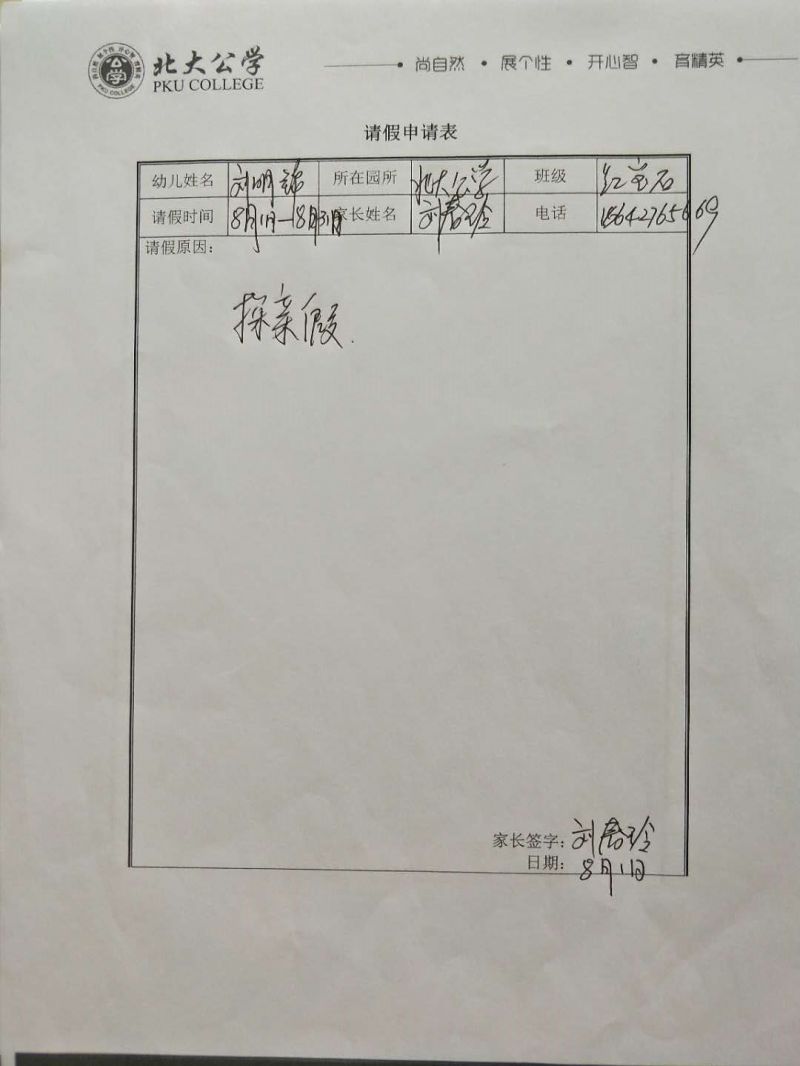 北大公学
PKU COLLEGE
尚自然 · 展个性 · 开心智 · 育精英
请假申请表
幼儿姓名 刘明 所在园所 北大公学 班级 红宝石
请假时间 8月1日—8月31日 家长姓名 刘春玲 电话 15642765669
请假原因:
探亲假.
家长签字: 刘春玲
日期: 8月1日